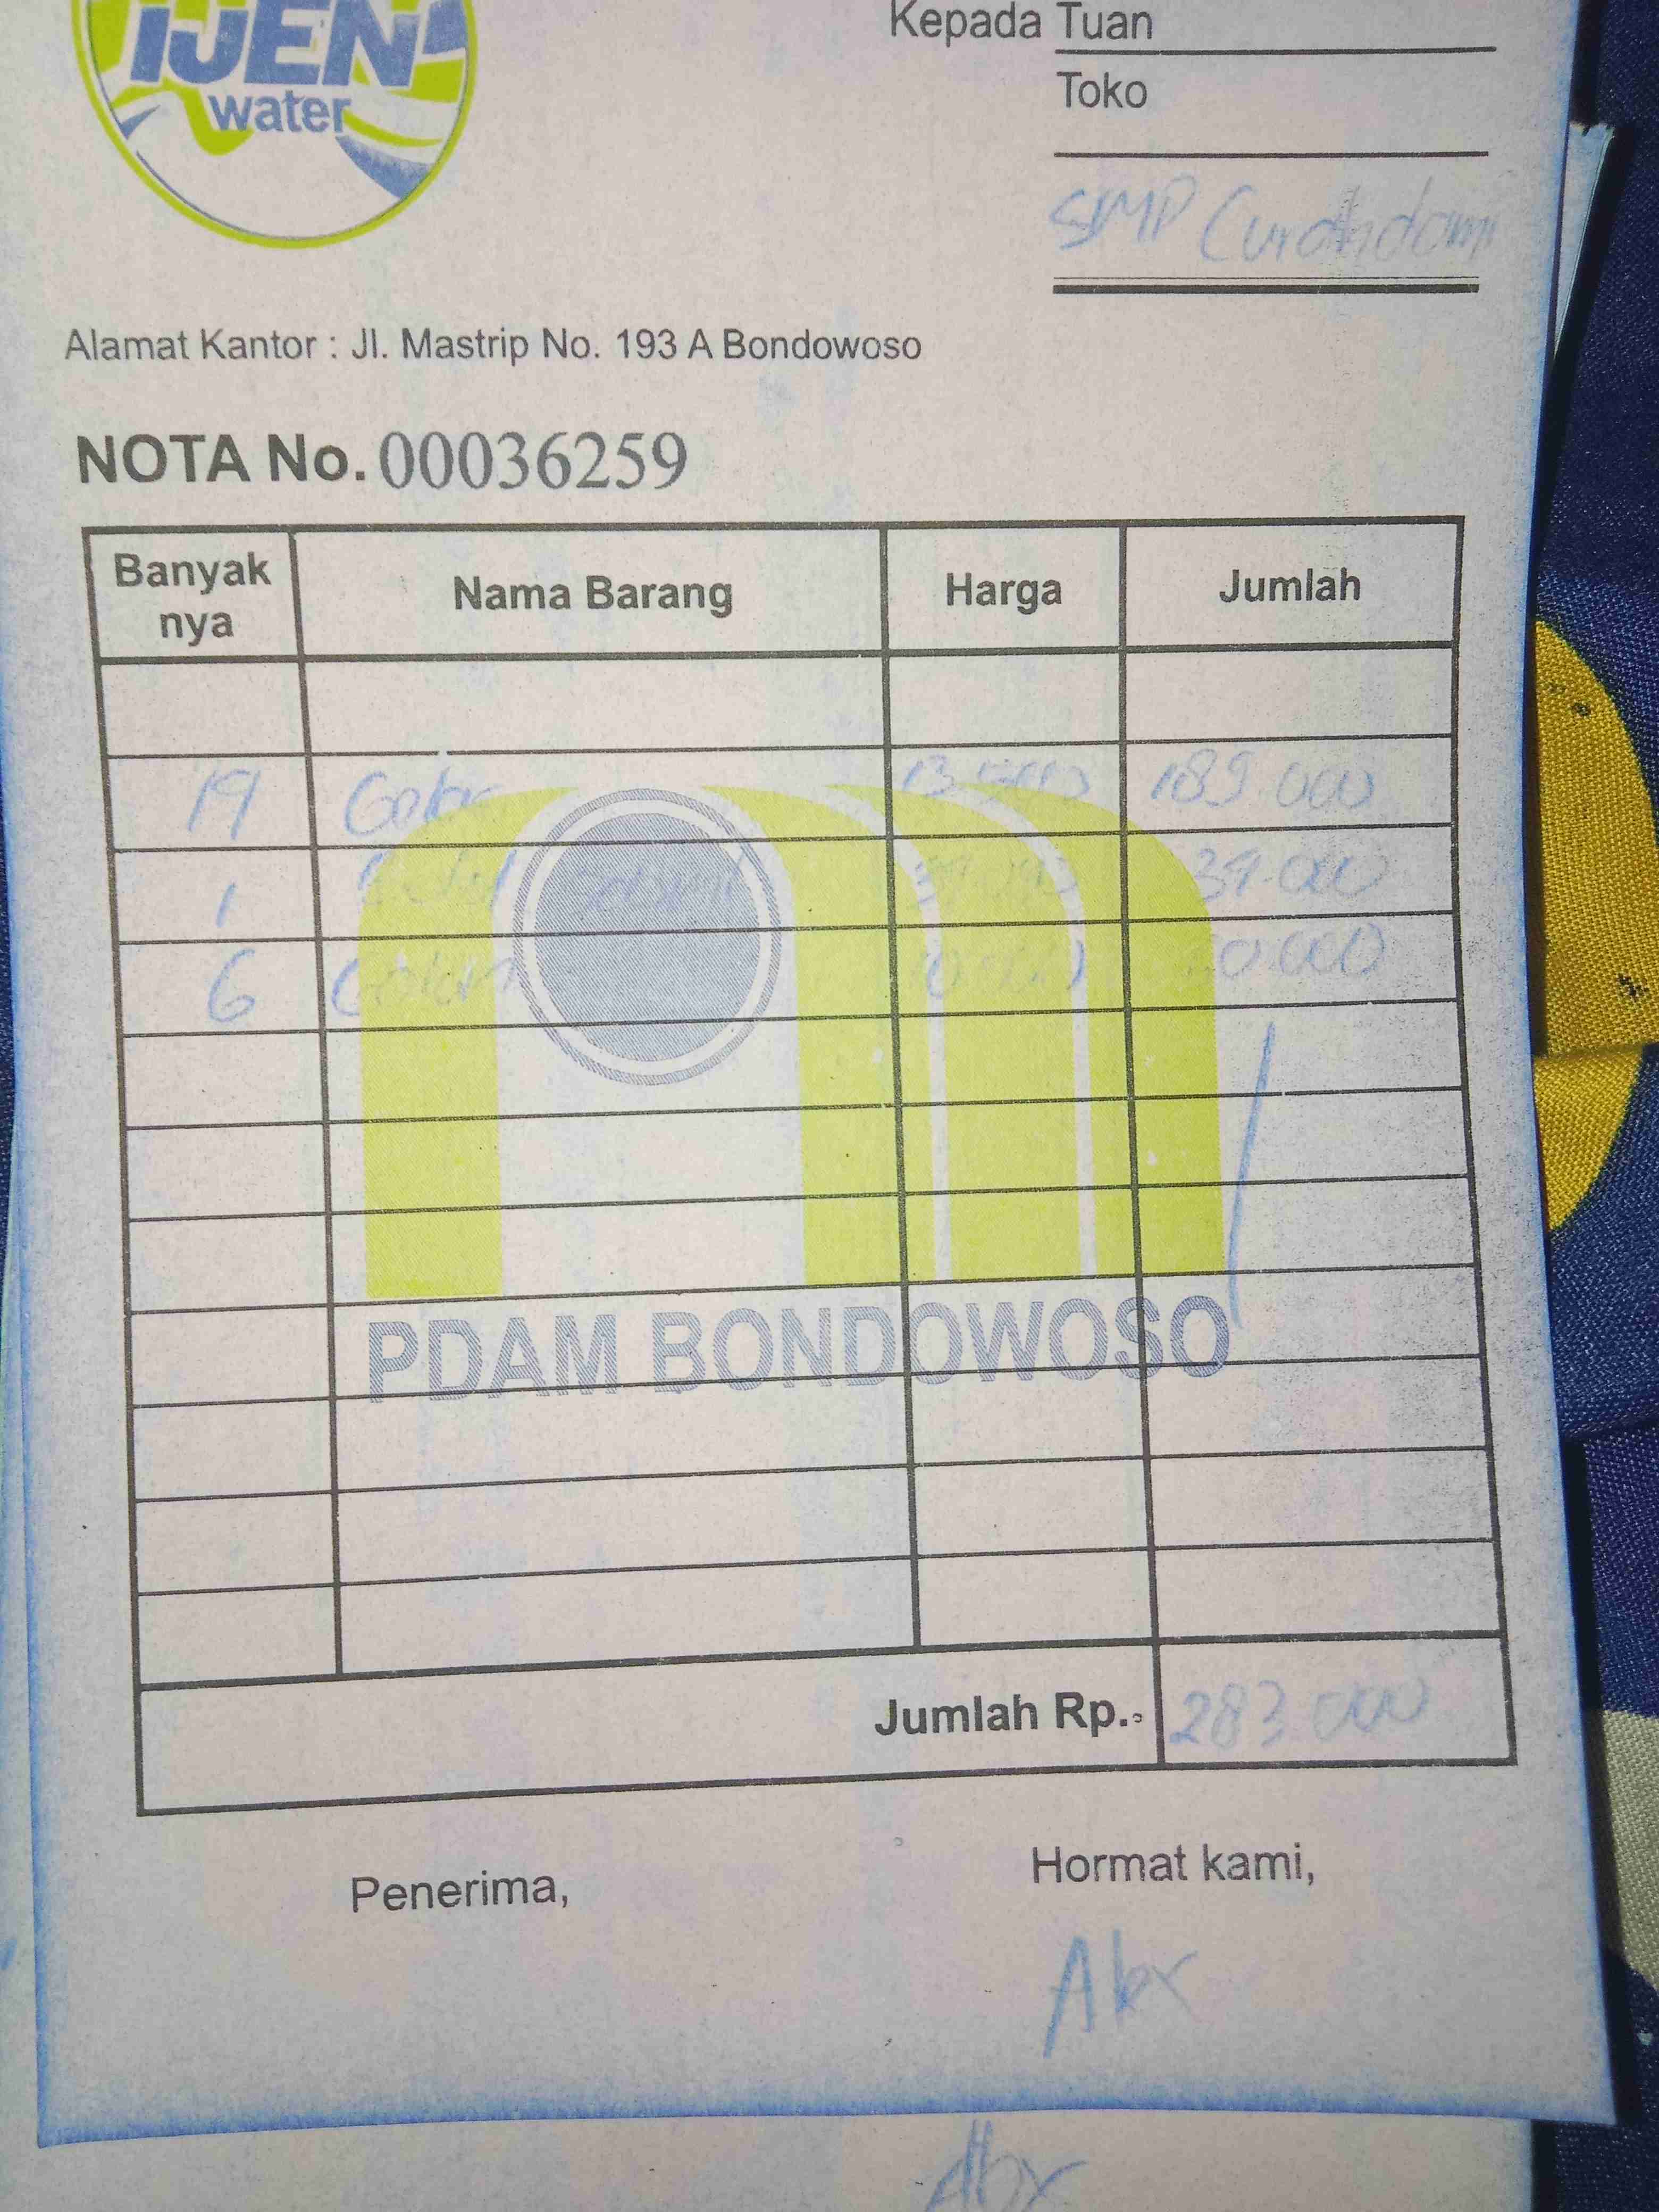 IJEN
water
Kepada Tuan
Toko
SMP Curahdami
Alamat Kantor : Jl. Mastrip No. 193 A Bondowoso
NOTA No. 00036259
Banyak nya Nama Barang Harga Jumlah
14 Galon 13.500 189.000
1 34.000 34.000
6 Galon 10.000 60.000
PDAM BONDOWOSO
Jumlah Rp. 283.000
Penerima, Hormat kami,